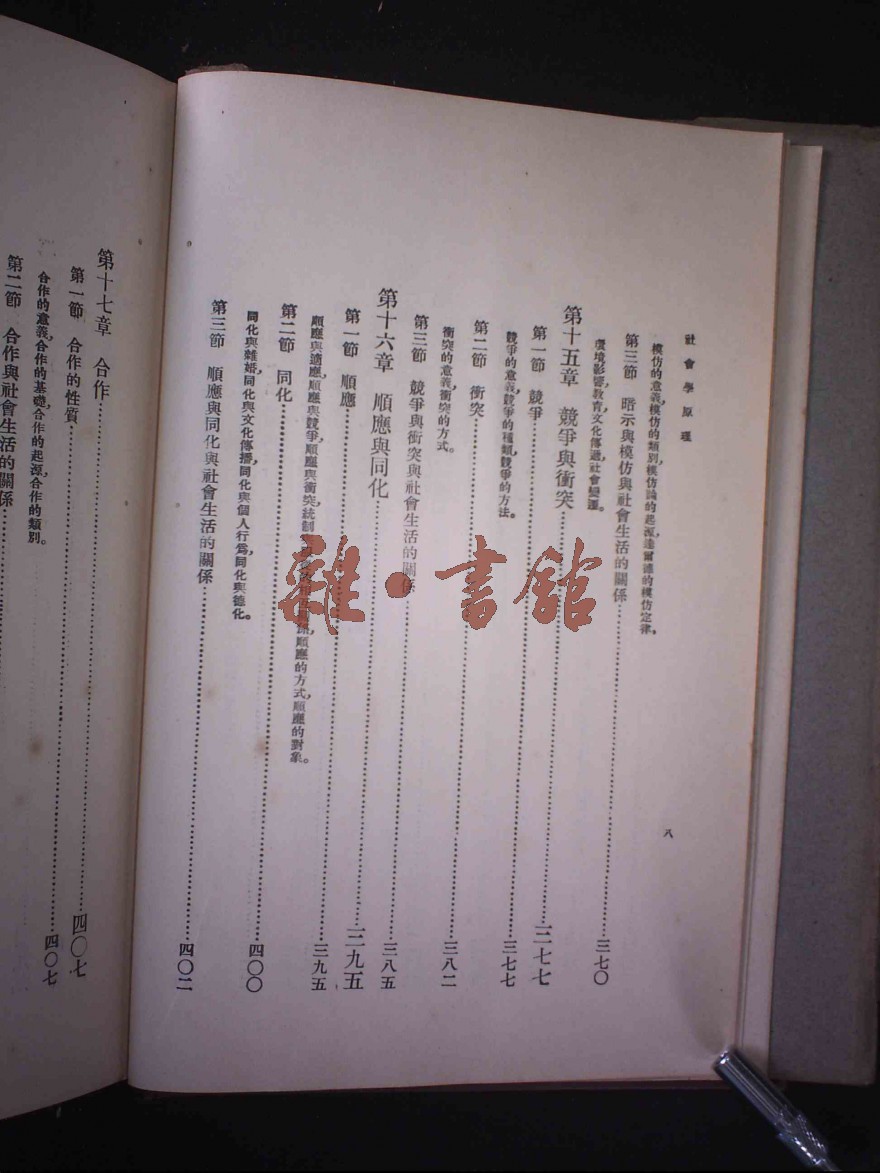 社會學原理
八
模仿的意義，模仿的類別，模仿論的起源，達爾德的模仿定律。
第三節 暗示與模仿與社會生活的關係……三七〇
環境影響，教育，文化傳遞，社會變遷。
第十五章 競爭與衝突……三七七
第一節 競爭……三七七
競爭的意義，競爭的種類，競爭的方法。
第二節 衝突……三八二
衝突的意義，衝突的方式。
第三節 競爭與衝突與社會生活的關係……三八五
第十六章 順應與同化……三九五
第一節 順應……三九五
順應與適應，順應與競爭，順應與衝突，統制，順應的方式，順應的對象。
第二節 同化……四〇〇
同化與雜婚，同化與文化傳播，同化與個人行爲，同化與德化。
第三節 順應與同化與社會生活的關係……四〇二
第十七章 合作……四〇七
第一節 合作的性質……四〇七
合作的意義，合作的基礎，合作的起源，合作的類別。
第二節 合作與社會生活的關係
雜·書館